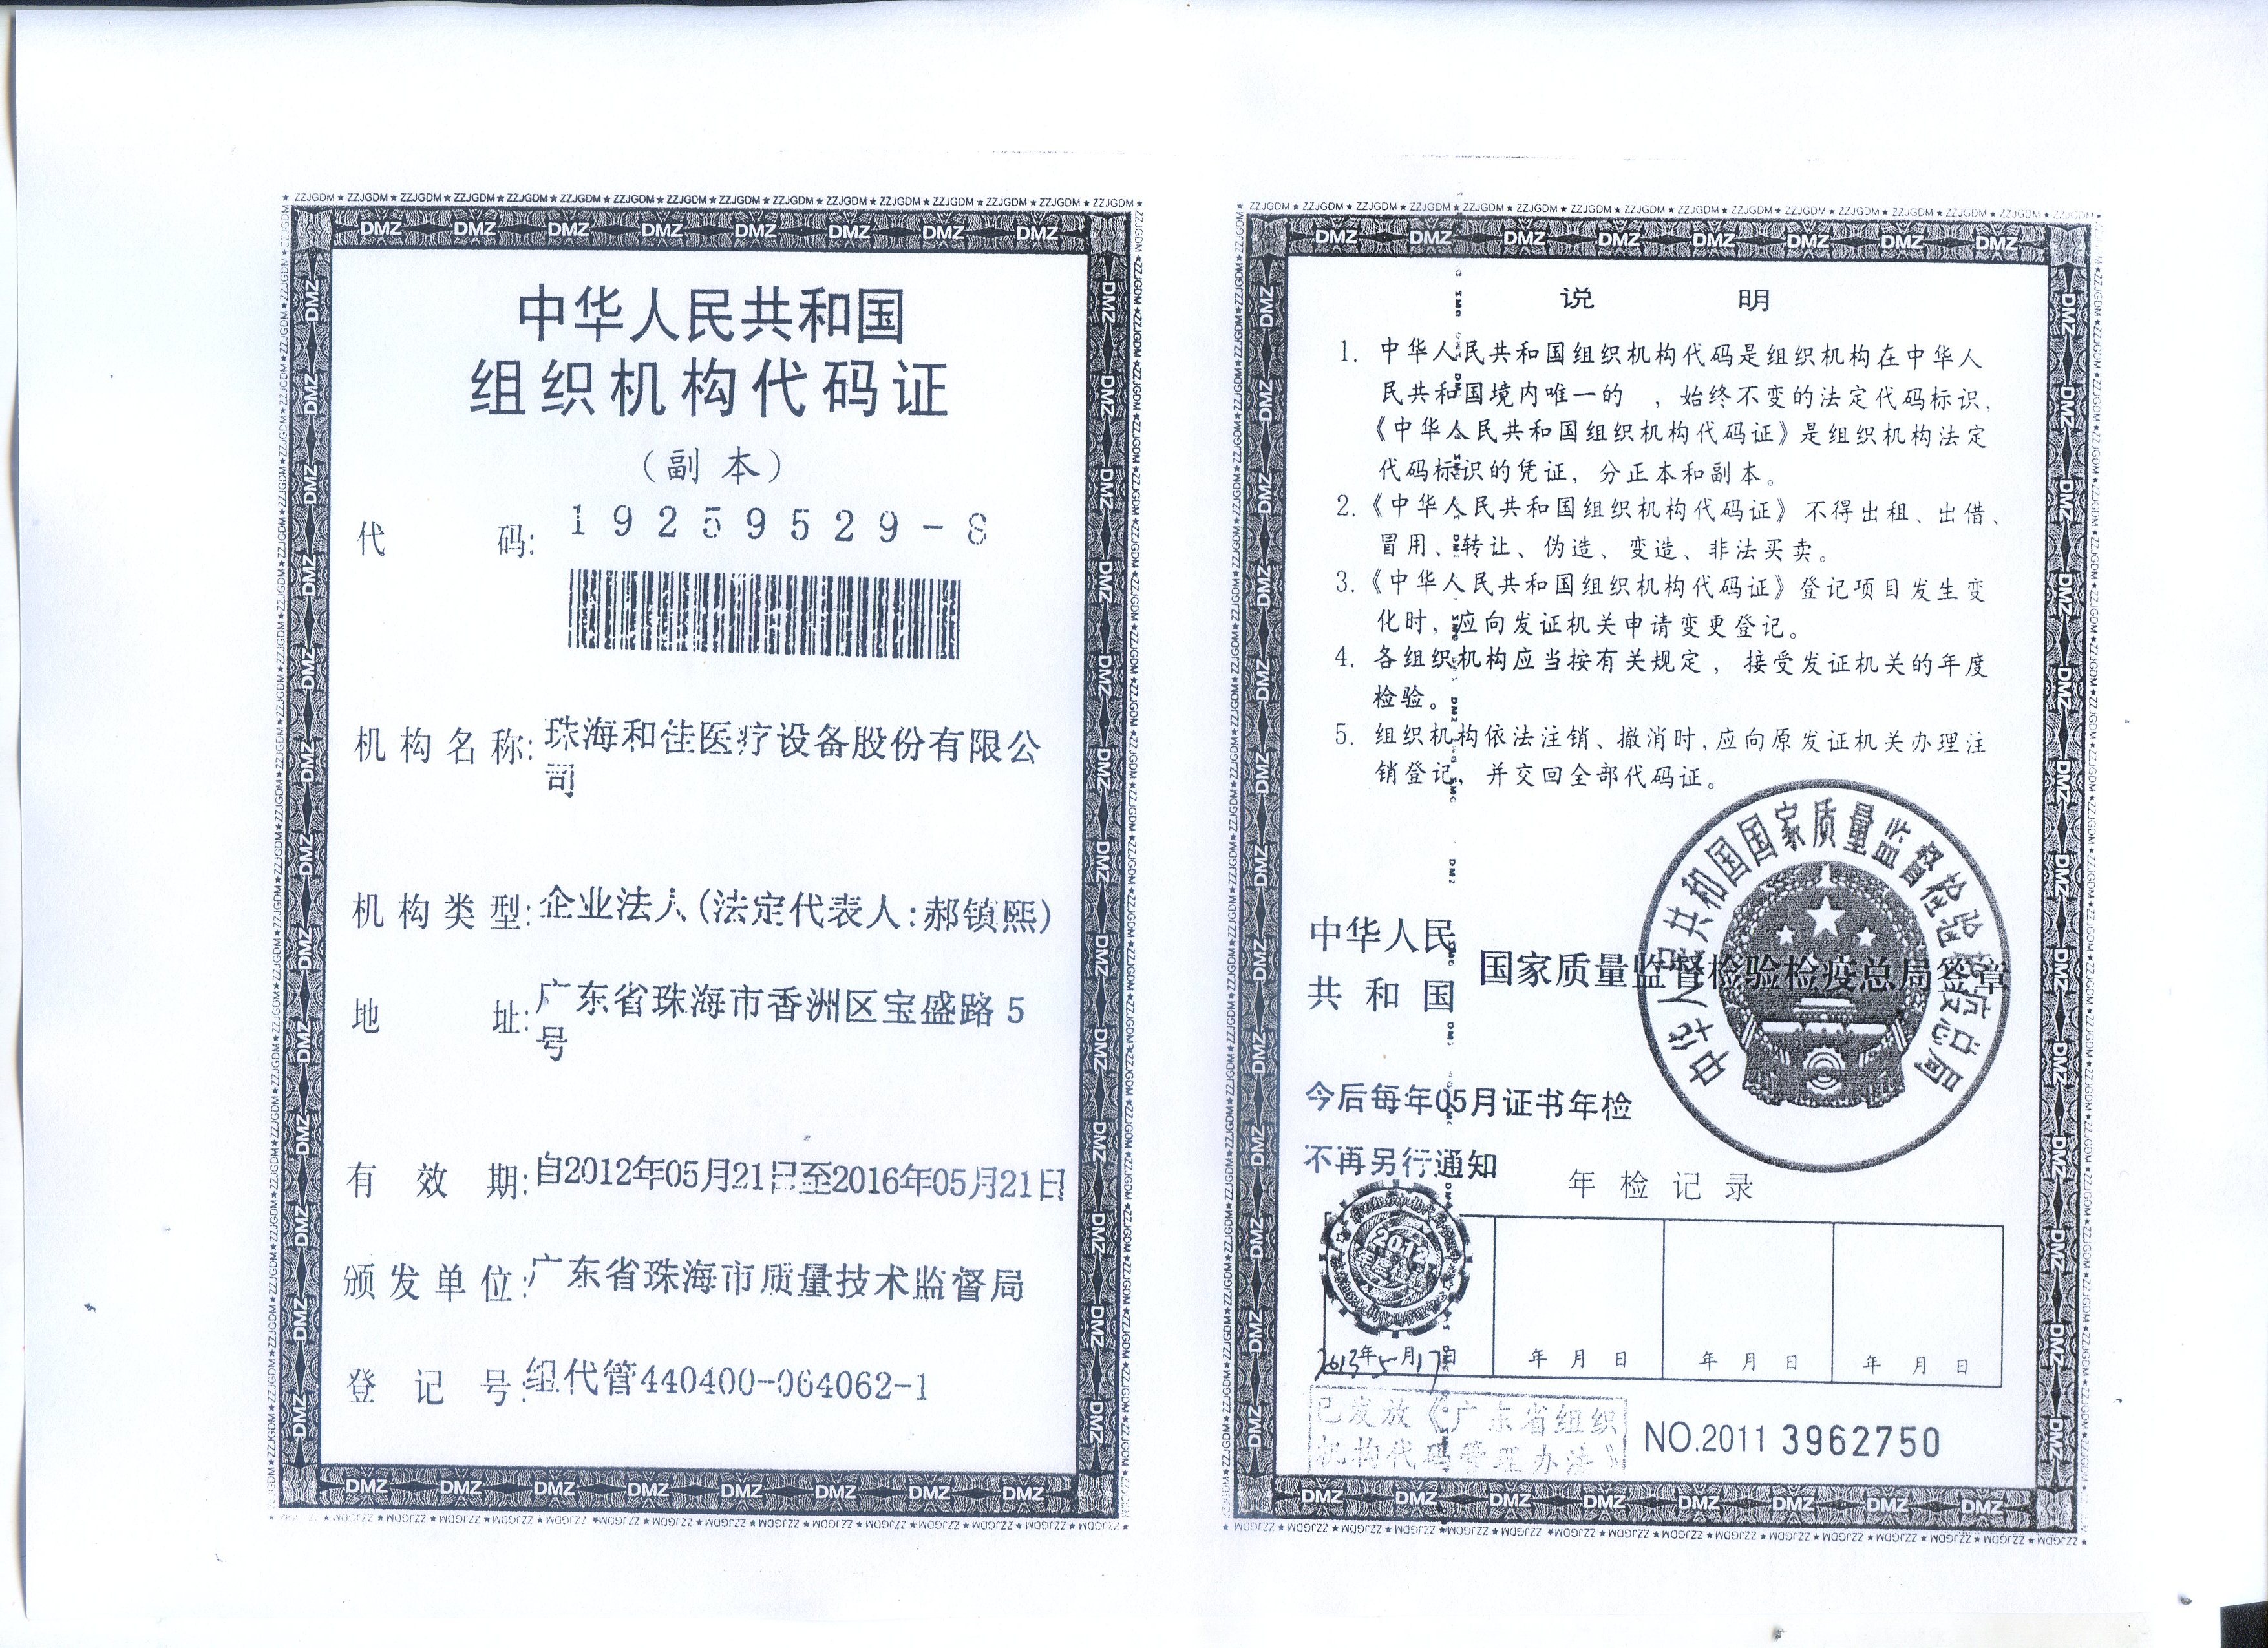 中华人民共和国
组织机构代码证
（副本）
代码: 19259529-8
机构名称: 珠海和佳医疗设备股份有限公
司
机构类型: 企业法人(法定代表人:郝镇熙)
地址: 广东省珠海市香洲区宝盛路5
号
有效期: 自2012年05月21日至2016年05月21日
颁发单位: 广东省珠海市质量技术监督局
登记号: 组代管440400-064062-1
说明
1. 中华人民共和国组织机构代码是组织机构在中华人
民共和国境内唯一的 ，始终不变的法定代码标识，
《中华人民共和国组织机构代码证》是组织机构法定
代码标识的凭证，分正本和副本。
2.《中华人民共和国组织机构代码证》不得出租、出借、
冒用、转让、伪造、变造、非法买卖。
3.《中华人民共和国组织机构代码证》登记项目发生变
化时，应向发证机关申请变更登记。
4. 各组织机构应当按有关规定，接受发证机关的年度
检验。
5. 组织机构依法注销、撤消时,应向原发证机关办理注
销登记，并交回全部代码证。
中华人民共和国国家质量监督检验检疫总局
中华人民
共和国
国家质量监督检验检疫总局签章
今后每年05月证书年检
不再另行通知
年检记录
2012
2013年5月17日
年 月 日
年 月 日
年 月 日
已发放《广东省组织
机构代码管理办法》
NO.2011 3962750